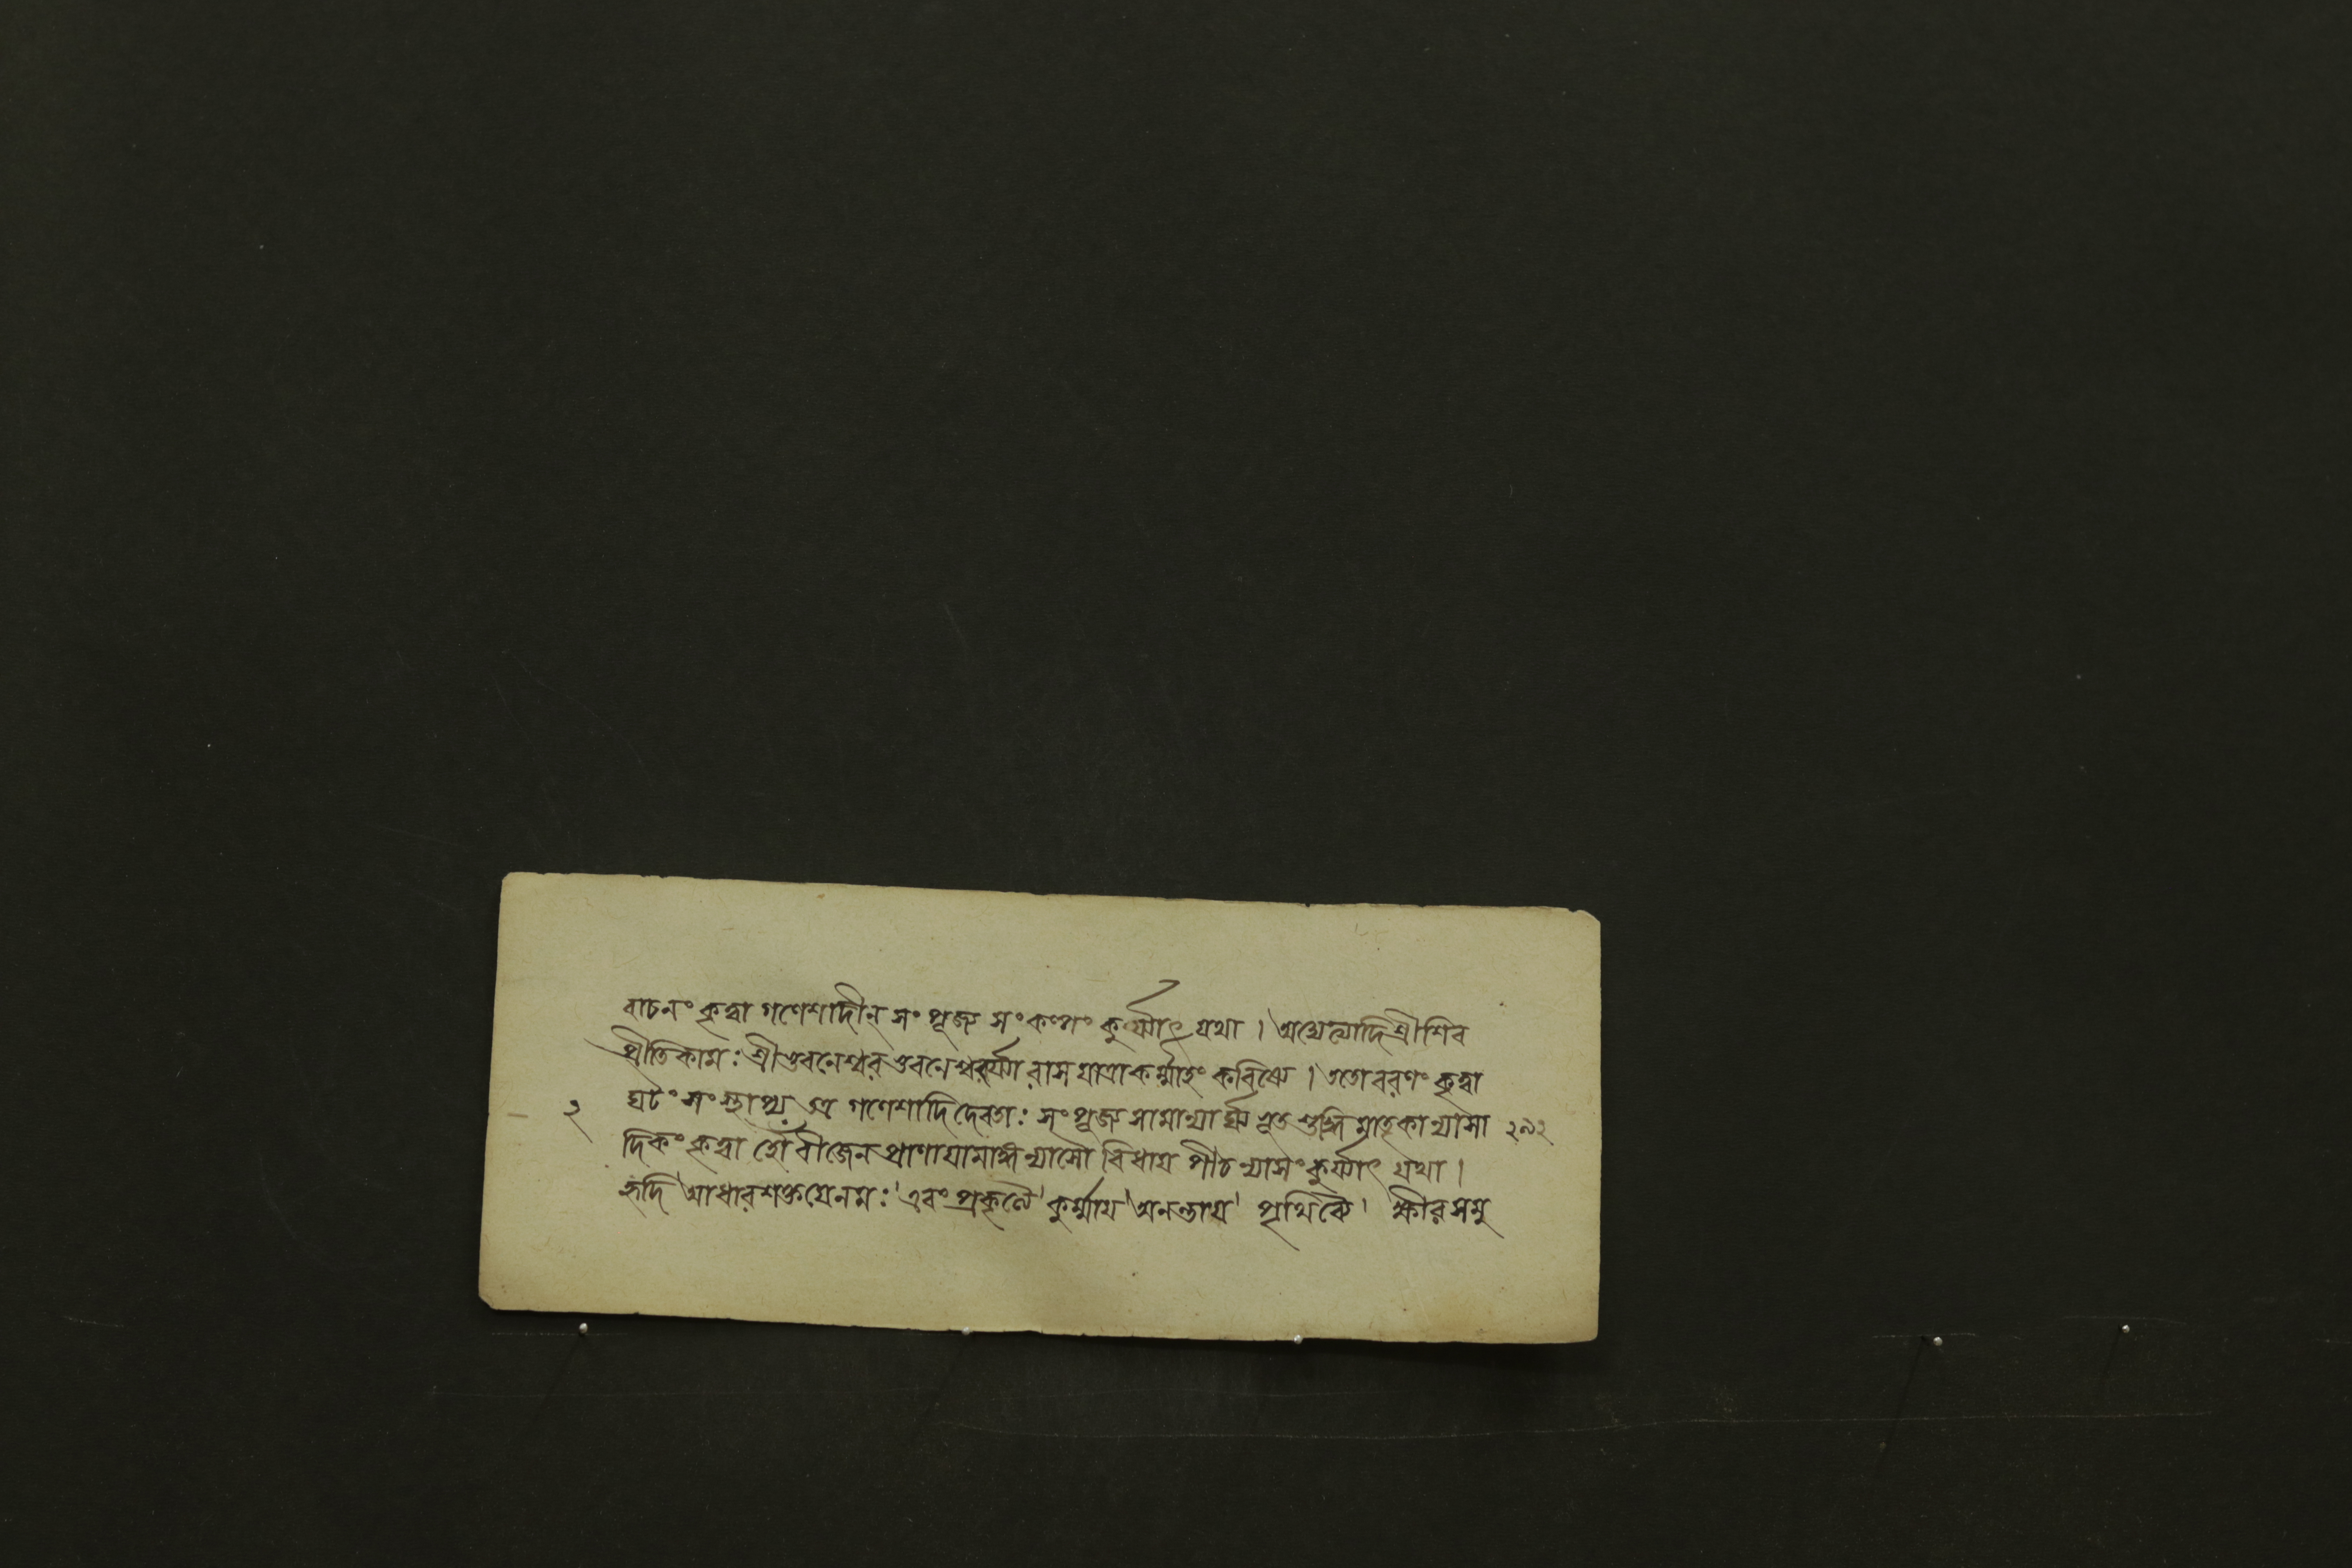 বাচনং কৃত্বা গণেশাদীন্ সংপূজ্য সংকল্পং কুর্য্যাৎ যথা । অদ্যেত্যাদি শ্রীশিব
প্রীতিকামঃ শ্রীভুবনেশ্বর ভুবনেশ্বর্য্যা রাসযাত্রাকর্ম্মাহং করিষ্যে । ততো বরণং কৃত্বা
২ ঘটং সংস্থাপ্য তত্র গণেশাদিদেবতাঃ সংপূজ্য সামান্যার্ঘ্য ভূতশুদ্ধি মাতৃকান্যাসা ২৯২
দিকং কৃত্বা হৌঁ বীজেন প্রাণায়ামাঙ্গন্যাসৌ বিধায় পীঠন্যাসং কুর্য্যাৎ যথা ।
হৃদি আধারশক্তয়ে নমঃ । এবং প্রকৃত্যৈ । কুর্ম্মায় । অনন্তায় । পৃথিব্যৈ । ক্ষীরসমু